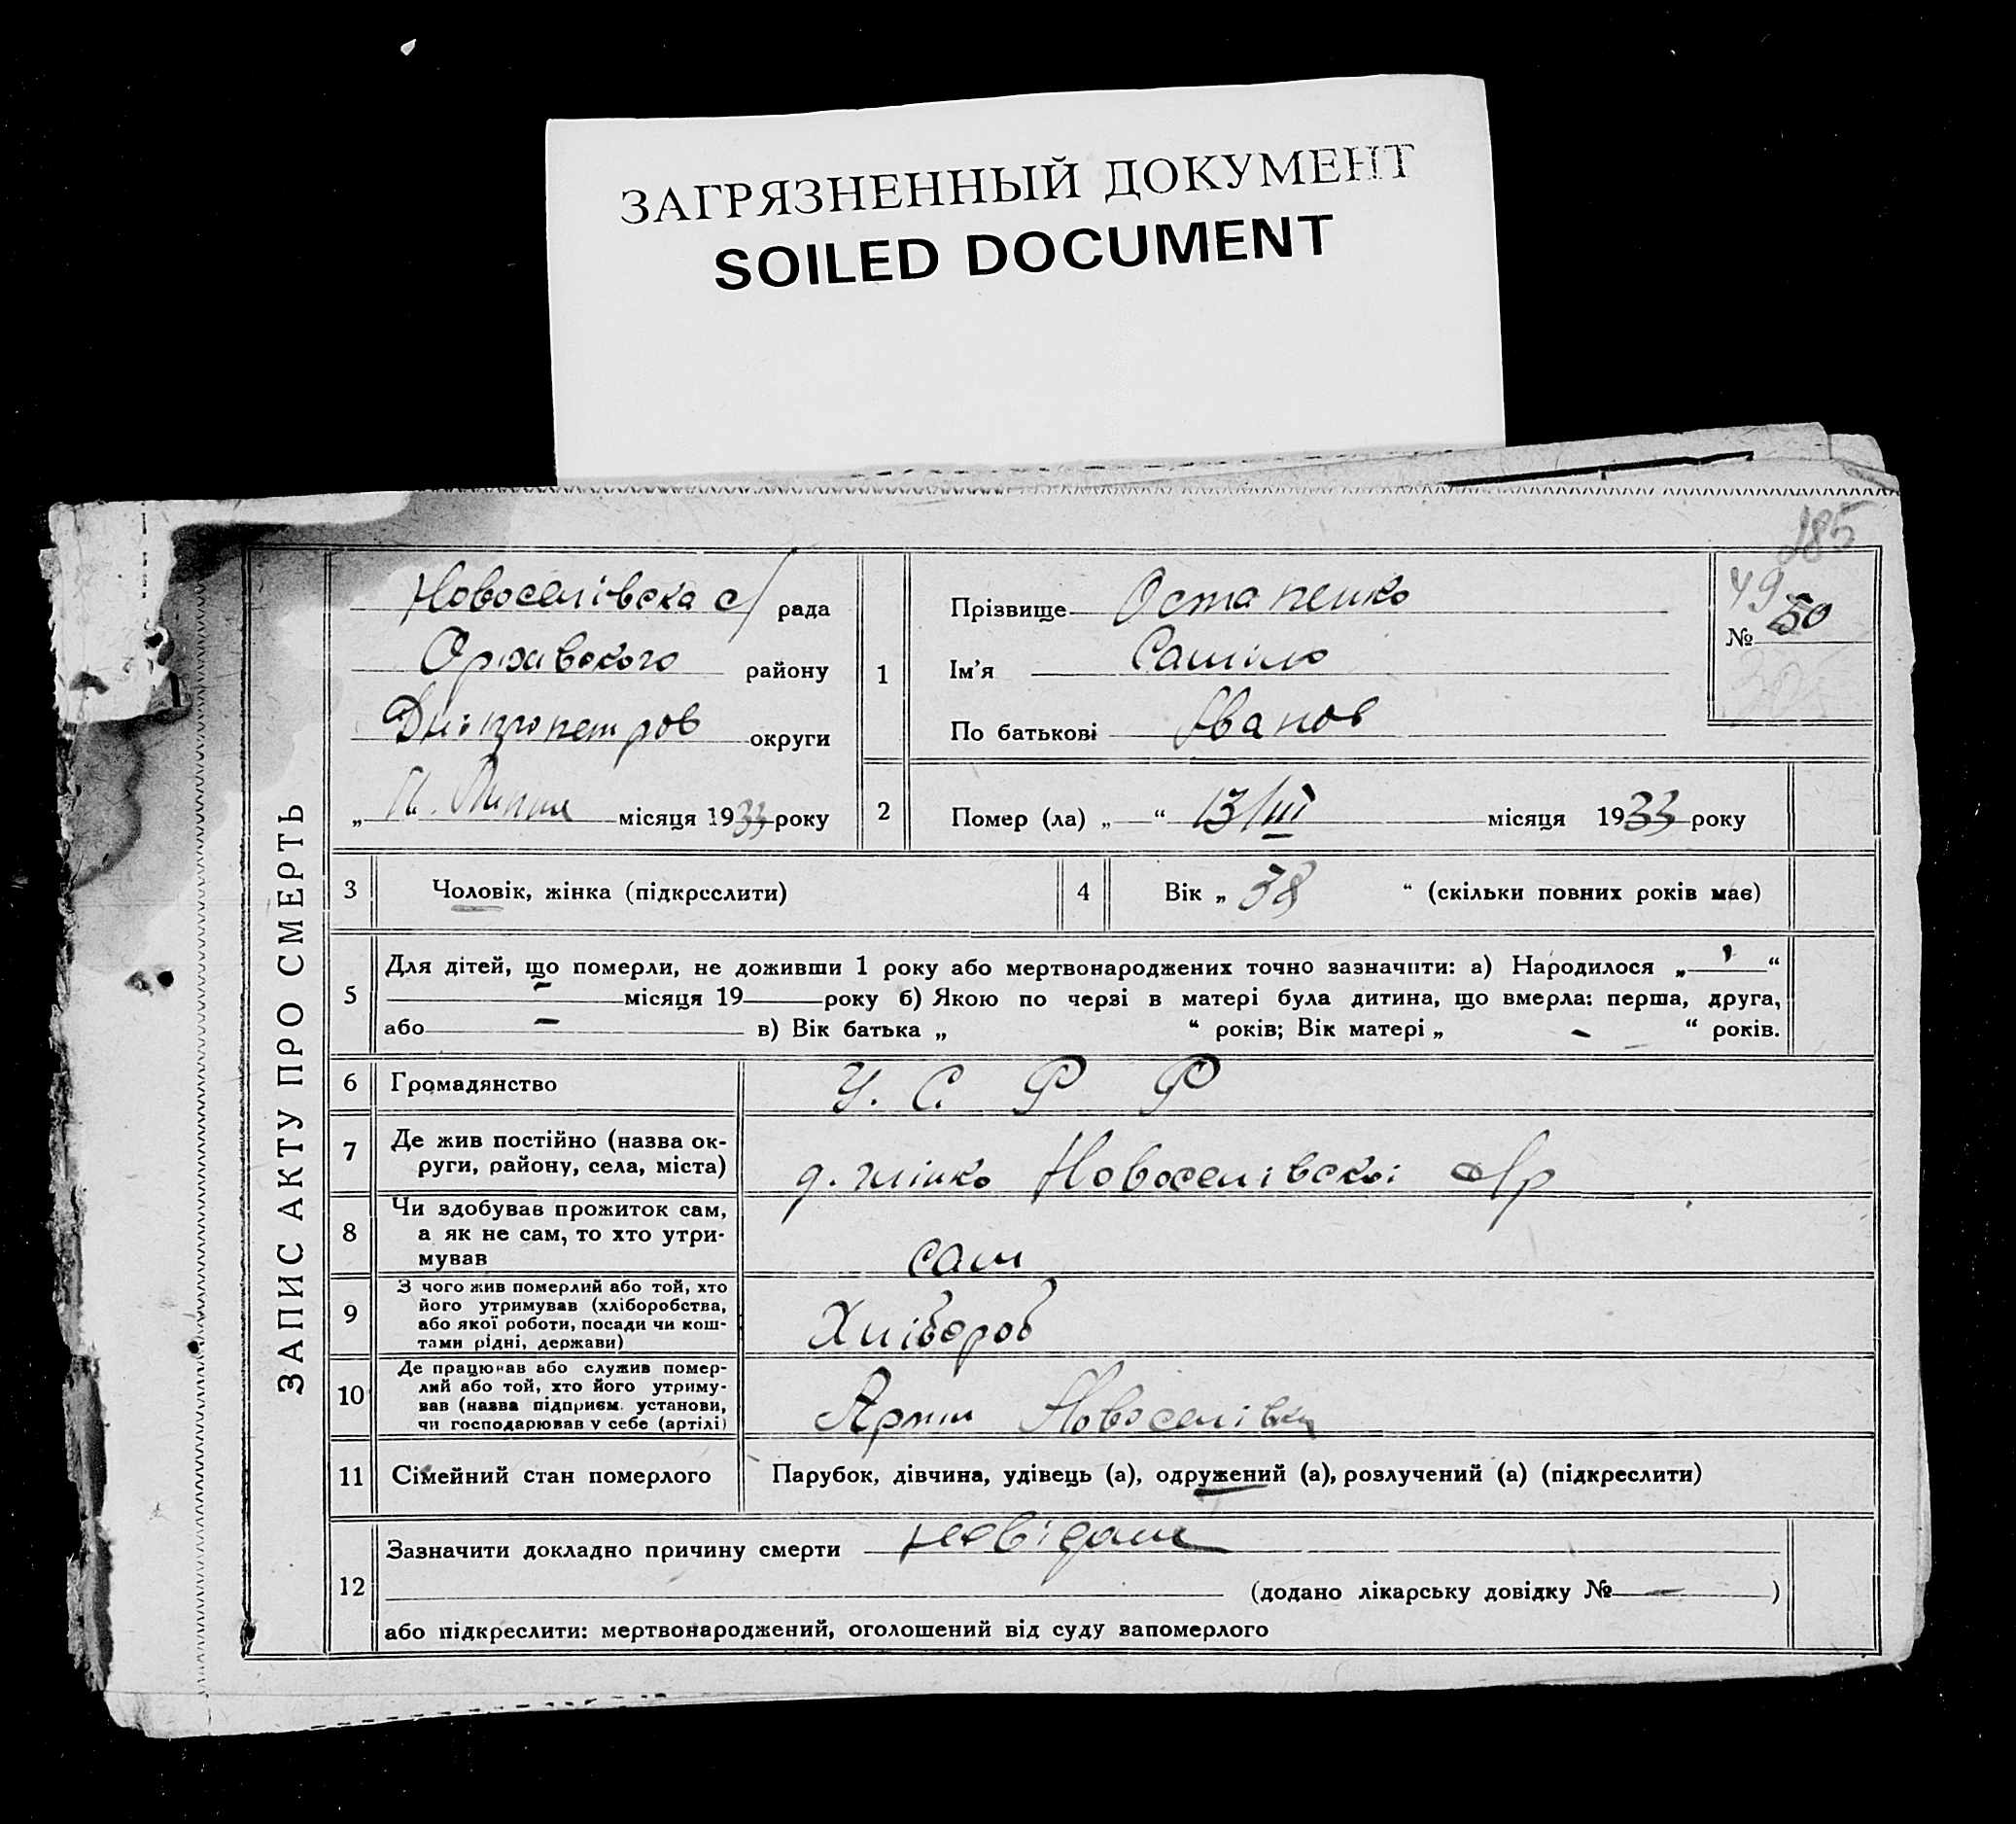 ЗАГРЯЗНЕННЫЙ ДОКУМЕНТ
SOILED DOCUMENT
185
ЗАПИС АКТУ ПРО СМЕРТЬ
Новоселівска с/ рада
району
Дніпропетров округи
„ місяця 1933 року
1 Прізвище Остапенко
Ім’я
По батькові Іванов
49
№ 50
2 Помер (ла) „ “ 13/III місяця 1933 року
3 Чоловік, жінка (підкреслити)
4 Вік „ 38 “ (скільки повних років має)
5 Для дітей, що померли, не доживши 1 року або мертвонароджених точно зазначити: а) Народилося „ “
місяця 19 року б) Якою по черзі в матері була дитина, що вмерла: перша, друга,
або – в) Вік батька „ “ років; Вік матері „ - “ років.
6 Громадянство У. С. Р Р
7 Де жив постійно (назва ок-
руги, району, села, міста) Новоселівскоі
8 Чи здобував прожиток сам,
а як не сам, то хто утри-
мував сам
9 З чого жив померлий або той, хто
його утримував (хліборобства,
або якої роботи, посади чи кош-
тами рідні, держави) Хлібороб
10 Де працював або служив помер-
лий або той, хто його утриму-
вав (назва підприєм. установи,
чи господарював у себе (артілі) Новоселівка
11 Сімейний стан померлого Парубок, дівчина, удівець (а), одружений (а), розлучений (а) (підкреслити)
12 Зазначити докладно причину смерти
(додано лікарську довідку № — )
або підкреслити: мертвонароджений, оголошений від суду запомерлого